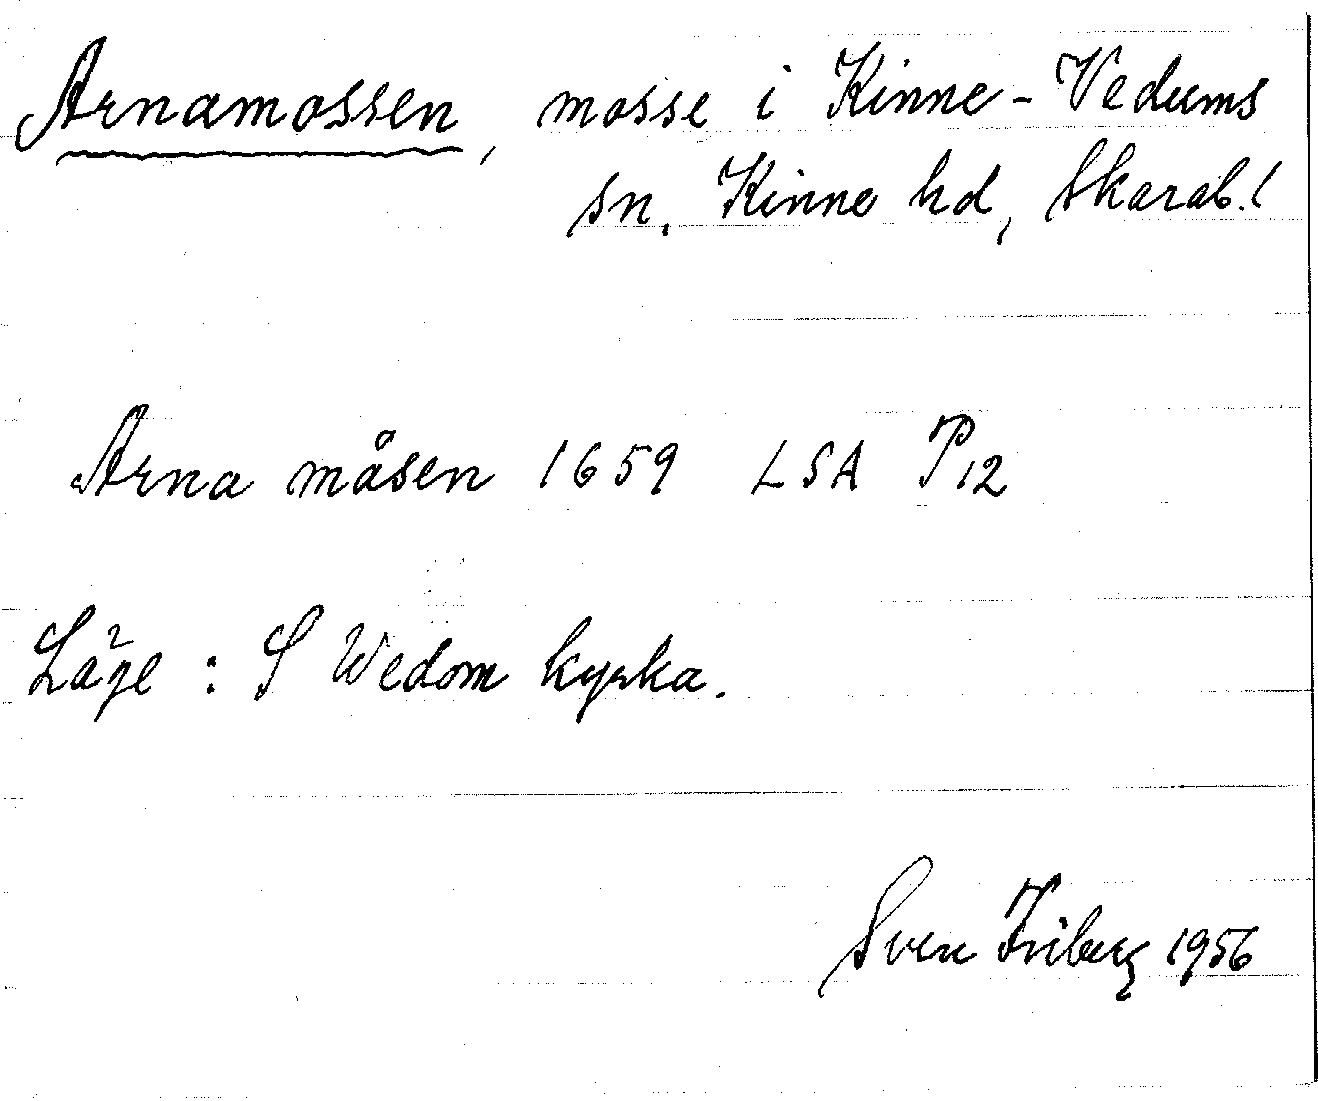 Arnamossen, mosse i Kinne-Vedums
sn. Kinne hd, Skarab.l
Arna måsen 1659 LSA P12
Läge : S Wedom kyrka.
Sven Friberg 1956